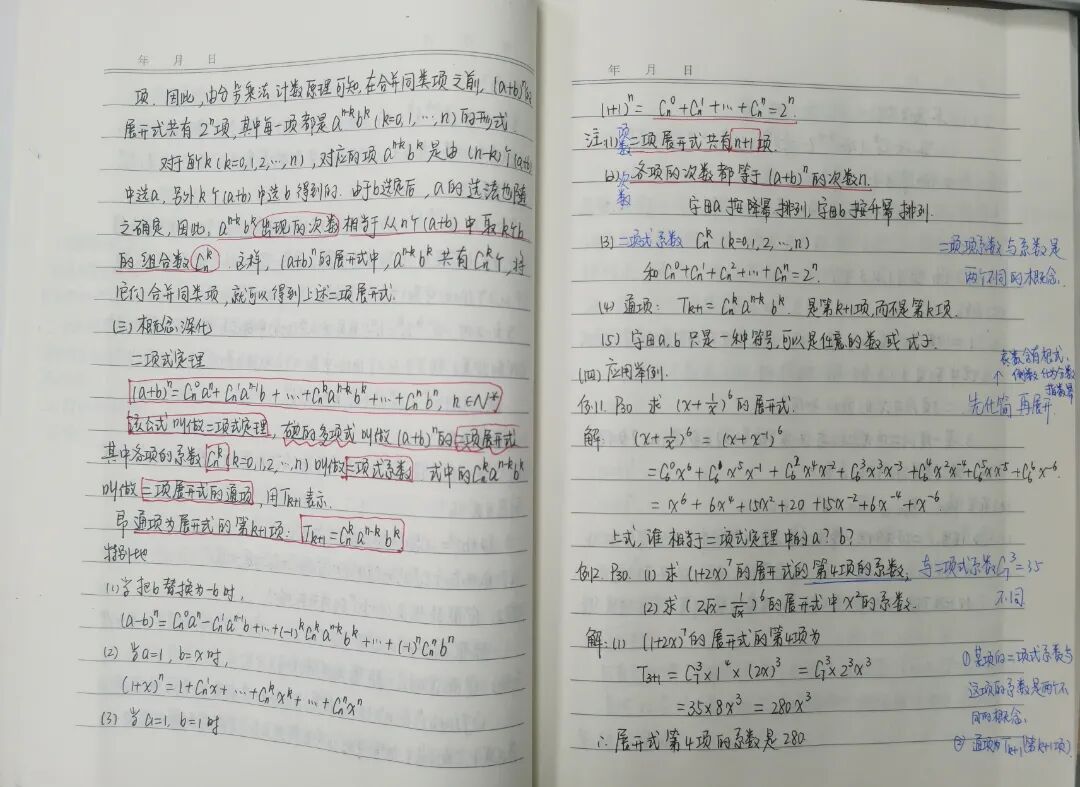 年 月 日
项. 因此, 由分步乘法计数原理可知, 在合并同类项之前, (a+b)ⁿ的
展开式共有 2ⁿ项, 其中每一项都是 aⁿ⁻ᵏbᵏ (k=0,1,…,n) 的形式.
对于每个k (k=0,1,2,…,n), 对应的项 aⁿ⁻ᵏbᵏ 是由 (n-k)个(a+b)
中选a, 另外k个(a+b)中选b得到的. 由于b选定后, a的选法也随
之确定, 因此, aⁿ⁻ᵏbᵏ出现的次数相当于从n个(a+b)中取k个b
的组合数Cₙᵏ. 这样, (a+b)ⁿ的展开式中, aⁿ⁻ᵏbᵏ共有Cₙᵏ个, 将
它们合并同类项, 就可以得到上述二项展开式.
(三) 概念深化
二项式定理
(a+b)ⁿ=Cₙ⁰aⁿ+Cₙ¹aⁿ⁻¹b+…+Cₙᵏaⁿ⁻ᵏbᵏ+…+Cₙⁿbⁿ, n∈N*
该公式叫做二项式定理, 右边的多项式叫做(a+b)ⁿ的二项展开式
其中各项的系数Cₙᵏ(k=0,1,2,…,n)叫做二项式系数 式中的Cₙᵏaⁿ⁻ᵏbᵏ
叫做二项展开式的通项, 用Tₖ₊₁表示.
即通项为展开式的第k+1项: Tₖ₊₁=Cₙᵏaⁿ⁻ᵏbᵏ
特别地
(1) 当把b替换为-b时,
(a-b)ⁿ=Cₙ⁰aⁿ-Cₙ¹aⁿ⁻¹b+…+(-1)ᵏCₙᵏaⁿ⁻ᵏbᵏ+…+(-1)ⁿCₙⁿbⁿ
(2) 当a=1, b=x时,
(1+x)ⁿ=1+Cₙ¹x+…+Cₙᵏxᵏ+…+Cₙⁿxⁿ
(3) 当a=1, b=1时
年 月 日
(1+1)ⁿ=Cₙ⁰+Cₙ¹+…+Cₙⁿ=2ⁿ
注:(1) 项数 二项展开式共有n+1项
(2) 次数 各项的次数都等于(a+b)ⁿ的次数n.
字母a按降幂排列, 字母b按升幂排列.
(3) 二项式系数 Cₙᵏ(k=0,1,2,…,n)
和Cₙ⁰+Cₙ¹+Cₙ²+…+Cₙⁿ=2ⁿ.
二项项系数与系数是
两个不同的概念.
(4) 通项: Tₖ₊₁=Cₙᵏaⁿ⁻ᵏbᵏ. 是第k+1项, 而不是第k项.
(5) 字母a,b只是一种符号, 可以是任意的数或式子.
(四) 应用举例.
例1. P30 求(x+1/x)⁶的展开式.
指数幂
↑
先化简 再展开
解: (x+1/x)⁶=(x+x⁻¹)⁶
=C₆⁰x⁶+C₆¹x⁵x⁻¹+C₆²x⁴x⁻²+C₆³x³x⁻³+C₆⁴x²x⁻⁴+C₆⁵xx⁻⁵+C₆⁶x⁻⁶.
=x⁶+6x⁴+15x²+20+15x⁻²+6x⁻⁴+x⁻⁶.
上式, 谁相当于二项式定理中的a? b?
例2. P30. (1) 求(1+2x)⁷的展开式的第4项的系数, 与二项式系数C₇³=35
不同
(2) 求(2√x-1/√x)⁶的展开式中x²的系数.
解: (1) (1+2x)⁷的展开式的第4项为
T₃₊₁=C₇³×1⁴×(2x)³=C₇³×2³x³
=35×8x³=280x³
∴展开式第4项的系数是280
①某项的二项式系数与
这项的系数是两个不
同的概念.
②通项为Tₖ₊₁(第k+1项)